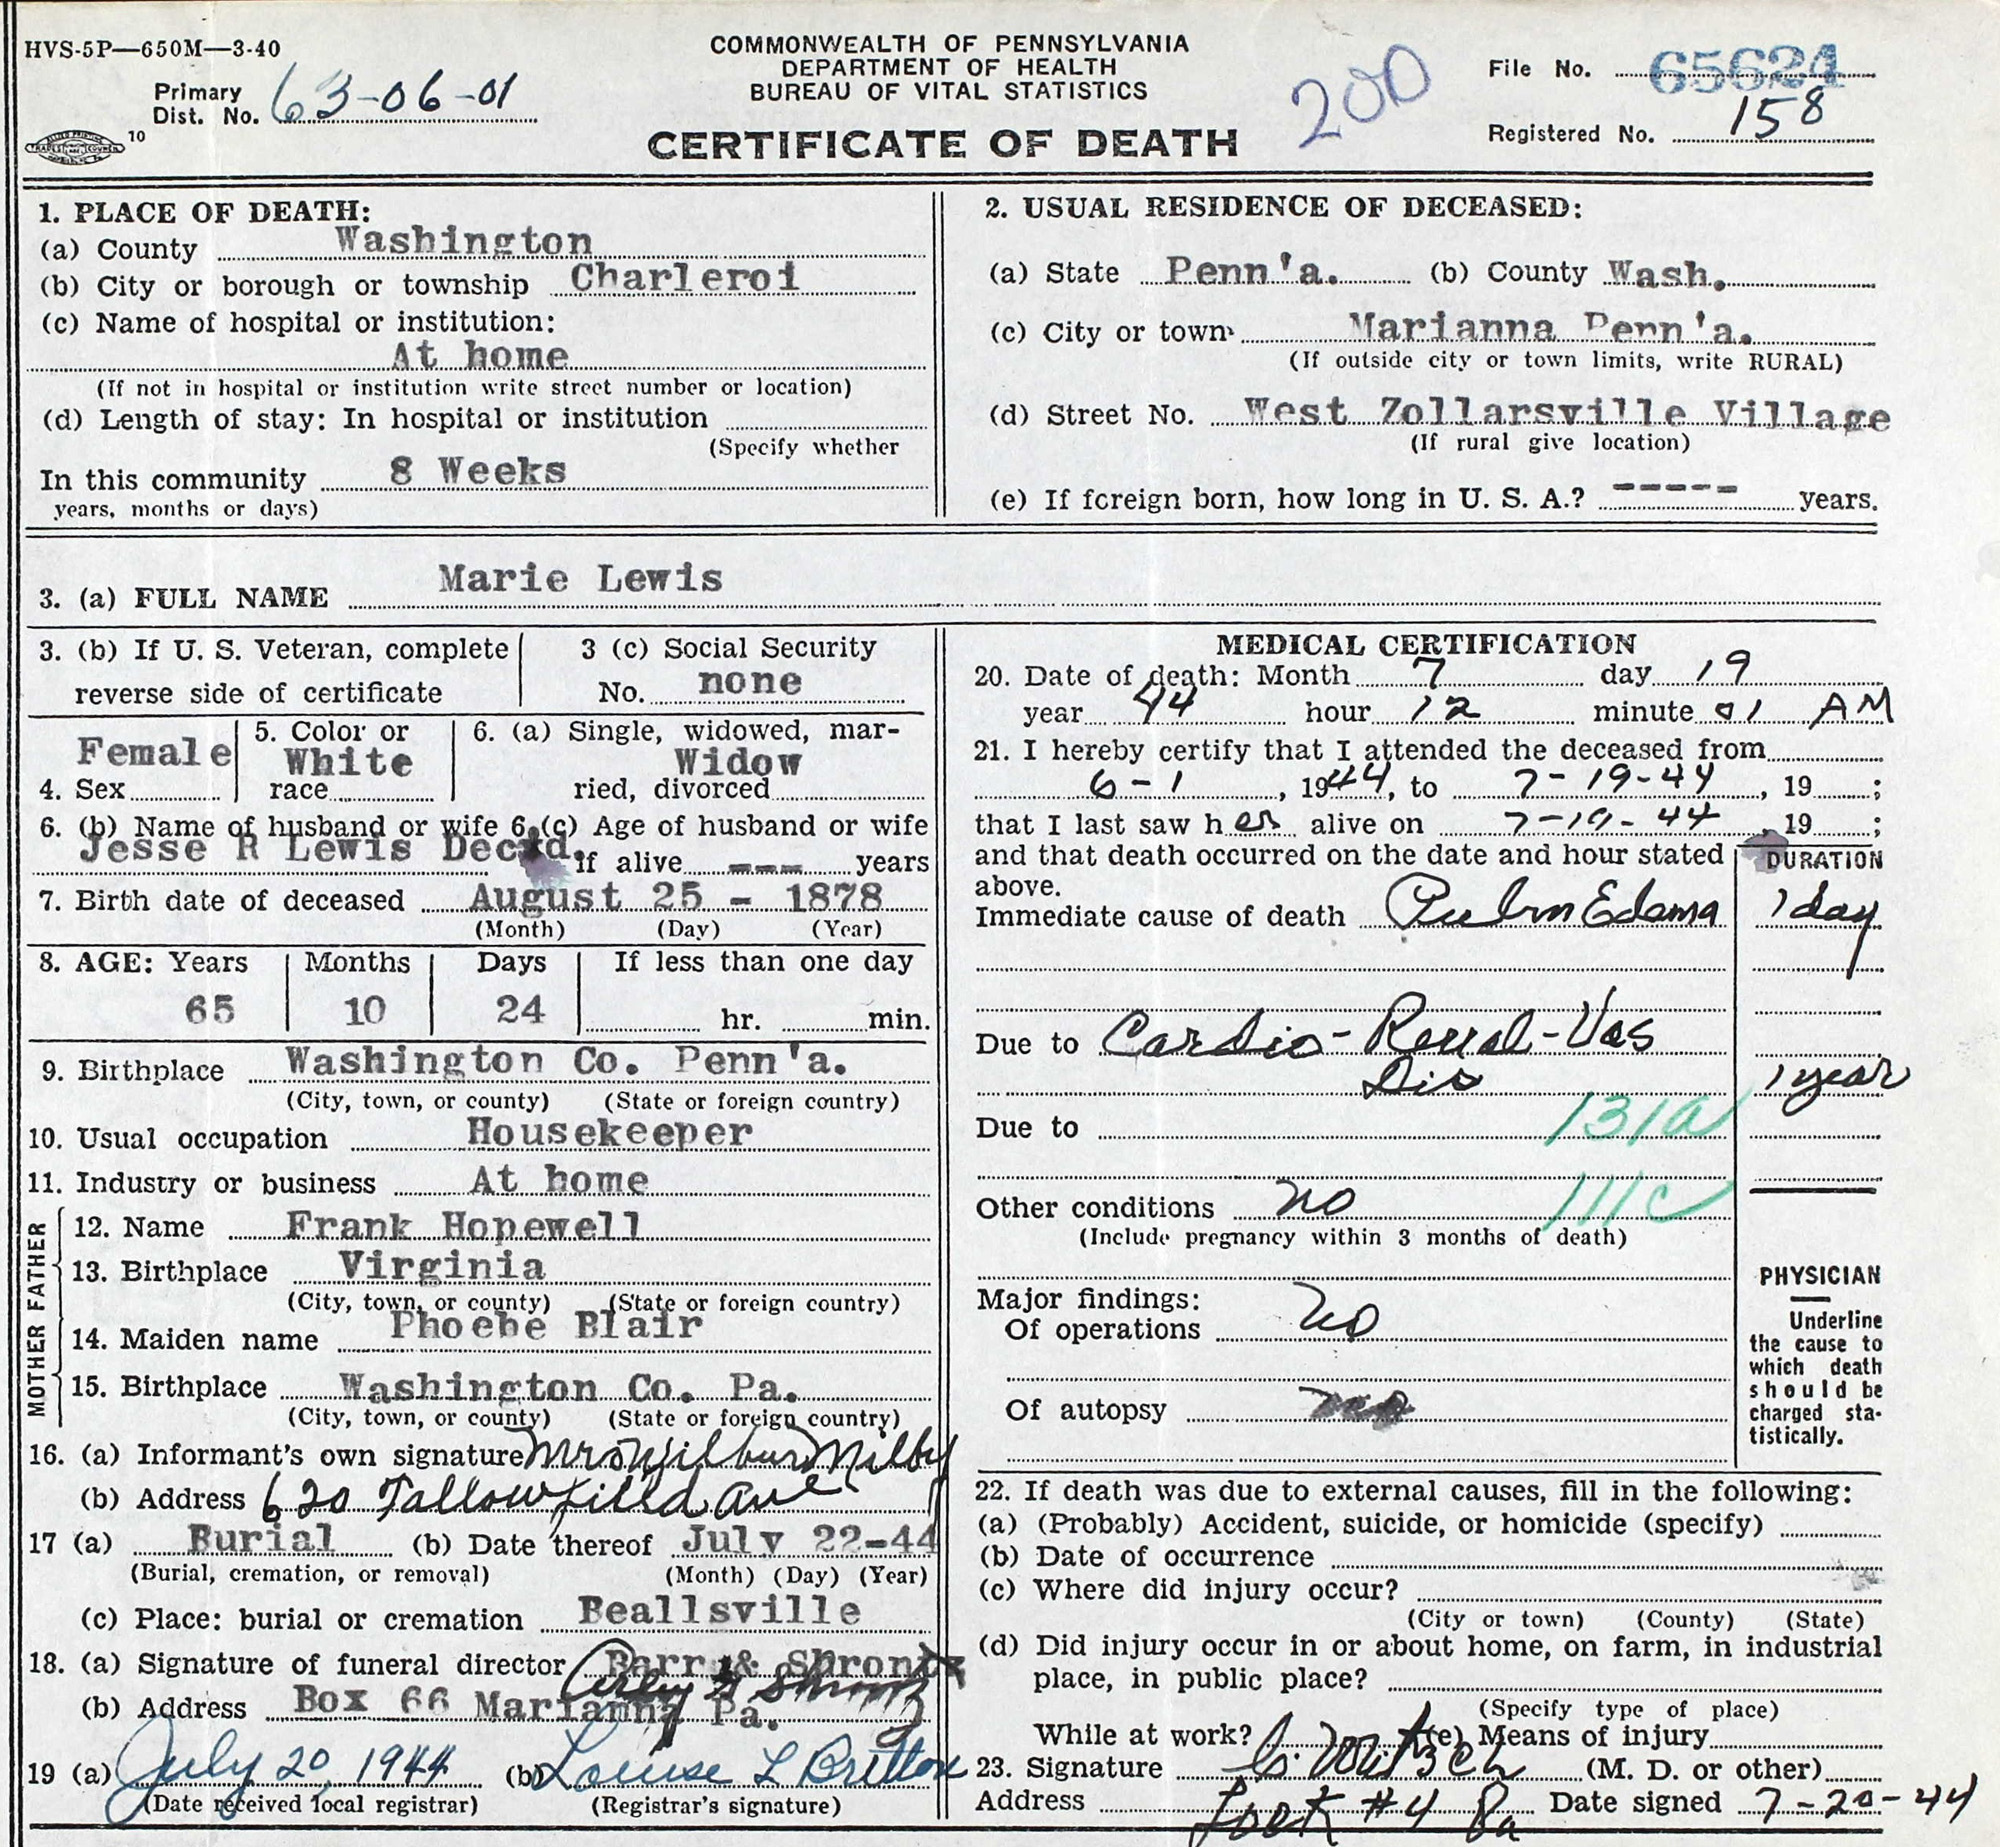 HVS-5P—650M—3-40
COMMONWEALTH OF PENNSYLVANIA
DEPARTMENT OF HEALTH
BUREAU OF VITAL STATISTICS
CERTIFICATE OF DEATH
Primary
Dist. No. 63-06-01
10
200
File No. 65624
Registered No. 158
1. PLACE OF DEATH:
(a) County Washington
(b) City or borough or township Charleroi
(c) Name of hospital or institution:
At home
(If not in hospital or institution write street number or location)
(d) Length of stay: In hospital or institution
(Specify whether
In this community 8 Weeks
years, months or days)
2. USUAL RESIDENCE OF DECEASED:
(a) State Penn'a. (b) County Wash.
(c) City or town Marianna Penn'a.
(If outside city or town limits, write RURAL)
(d) Street No. West Zollarsville Village
(If rural give location)
(e) If foreign born, how long in U. S. A.? ----- years.
3. (a) FULL NAME Marie Lewis
3. (b) If U. S. Veteran, complete
reverse side of certificate
3 (c) Social Security
No. none
Female
4. Sex
5. Color or
White
race
6. (a) Single, widowed, mar-
Widow
ried, divorced
6. (b) Name of husband or wife 6. (c) Age of husband or wife
Jesse R Lewis if alive --- years
7. Birth date of deceased August 25 - 1878
(Month) (Day) (Year)
8. AGE: Years Months Days If less than one day
65 10 24 hr. min.
9. Birthplace Washington Co. Penn'a.
(City, town, or county) (State or foreign country)
10. Usual occupation Housekeeper
11. Industry or business At home
FATHER
12. Name Frank Hopewell
13. Birthplace Virginia
(City, town, or county) (State or foreign country)
MOTHER
14. Maiden name Phoebe Blair
15. Birthplace Washington Co. Pa.
(City, town, or county) (State or foreign country)
16. (a) Informant's own signature Mrs Wilbur Milby
(b) Address 620 Tallowfield Ave
17 (a) Burial (b) Date thereof July 22-44
(Burial, cremation, or removal) (Month) (Day) (Year)
(c) Place: burial or cremation Beallsville
18. (a) Signature of funeral director Parr & Shrontz
(b) Address Box 66 Marianna Pa.
19 (a) July 20, 1944 (b) Louise L Britton
(Date received local registrar) (Registrar's signature)
MEDICAL CERTIFICATION
20. Date of death: Month 7 day 19
year 44 hour 12 minute 01 AM
21. I hereby certify that I attended the deceased from
6-1, 1944, to 7-19-44, 19 ;
that I last saw her alive on 7-19-44, 19 ;
and that death occurred on the date and hour stated
above.
DURATION
Immediate cause of death Pulm Edema 1 day
Due to Cardio-Renal-Vas
Dis 1 year
Due to 131a
111c
Other conditions no
(Include pregnancy within 3 months of death)
Major findings:
Of operations no
Of autopsy
PHYSICIAN
Underline
the cause to
which death
should be
charged sta-
tistically.
22. If death was due to external causes, fill in the following:
(a) (Probably) Accident, suicide, or homicide (specify)
(b) Date of occurrence
(c) Where did injury occur?
(City or town) (County) (State)
(d) Did injury occur in or about home, on farm, in industrial
place, in public place?
(Specify type of place)
While at work? (e) Means of injury
23. Signature (M. D. or other)
Address Lock #4 Pa Date signed 7-20-44